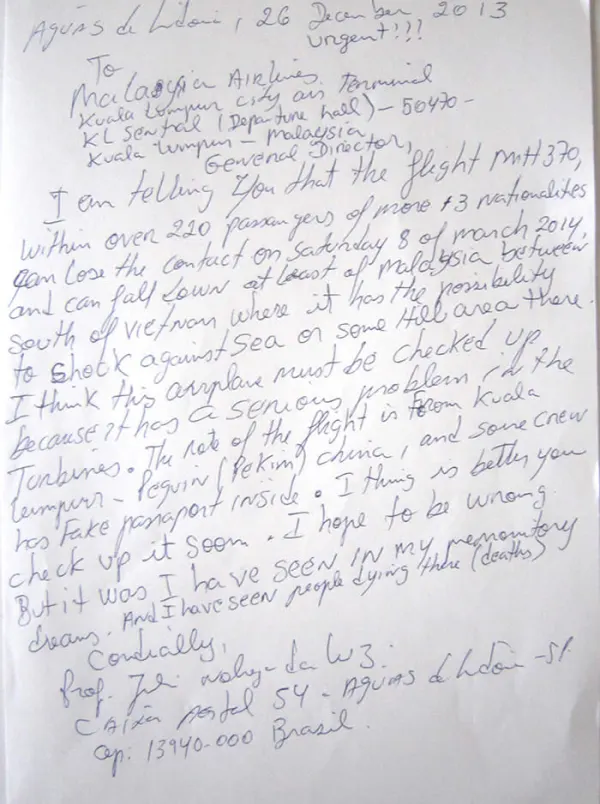 Aguas de Lidoia, 26 December 2013
urgent!!!
To
Malaysia Airlines.
Kuala Lumpur City air Terminal
KL Sentral (Departure hall) - 50470 -
Kuala Lumpur - malaysia
General Director,
I am telling you that the flight MH370,
within over 220 passangers of more 13 nationalites
can lose the contact on saturday 8 of march 2014,
and can fall down at Least of malaysia between
south of vietnam, where it has the possibility
to shock against sea or some Hill area there.
I think this airplane must be checked up
because it has a serious problem in the
Turbines. The rote of the flight is From Kuala
Lumpur - Pequin (Pekim) china, and some crew
has Fake passaport inside. I thing is better you
check up it soom. I hope to be wrong.
But it was I have seen in my premonitory
dreams. And I have seen people dying there (deaths)
Cordially,
Prof.
Caixa Postal 54 - Aguas de Lidoia - SP.
cep: 13940-000 Brasil.